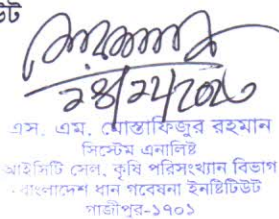 ২৪/১২/২০২৩
এস. এম. মোস্তাফিজুর রহমান
সিস্টেম এনালিষ্ট
আইসিটি সেল, কৃষি পরিসংখ্যান বিভাগ
বাংলাদেশ ধান গবেষনা ইনষ্টিটিউট
গাজীপুর-১৭০১